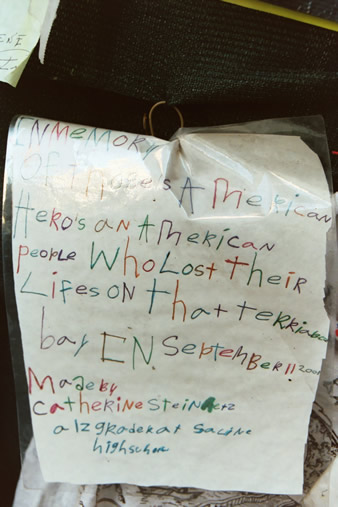 ENE
INMEMORY
OF Those's AMerican
Hero's an AMERican
People Who Lost Their
Lifes ON That
bay IN September!! 2001
Made by
Catherine
a 12 grader at
highschool